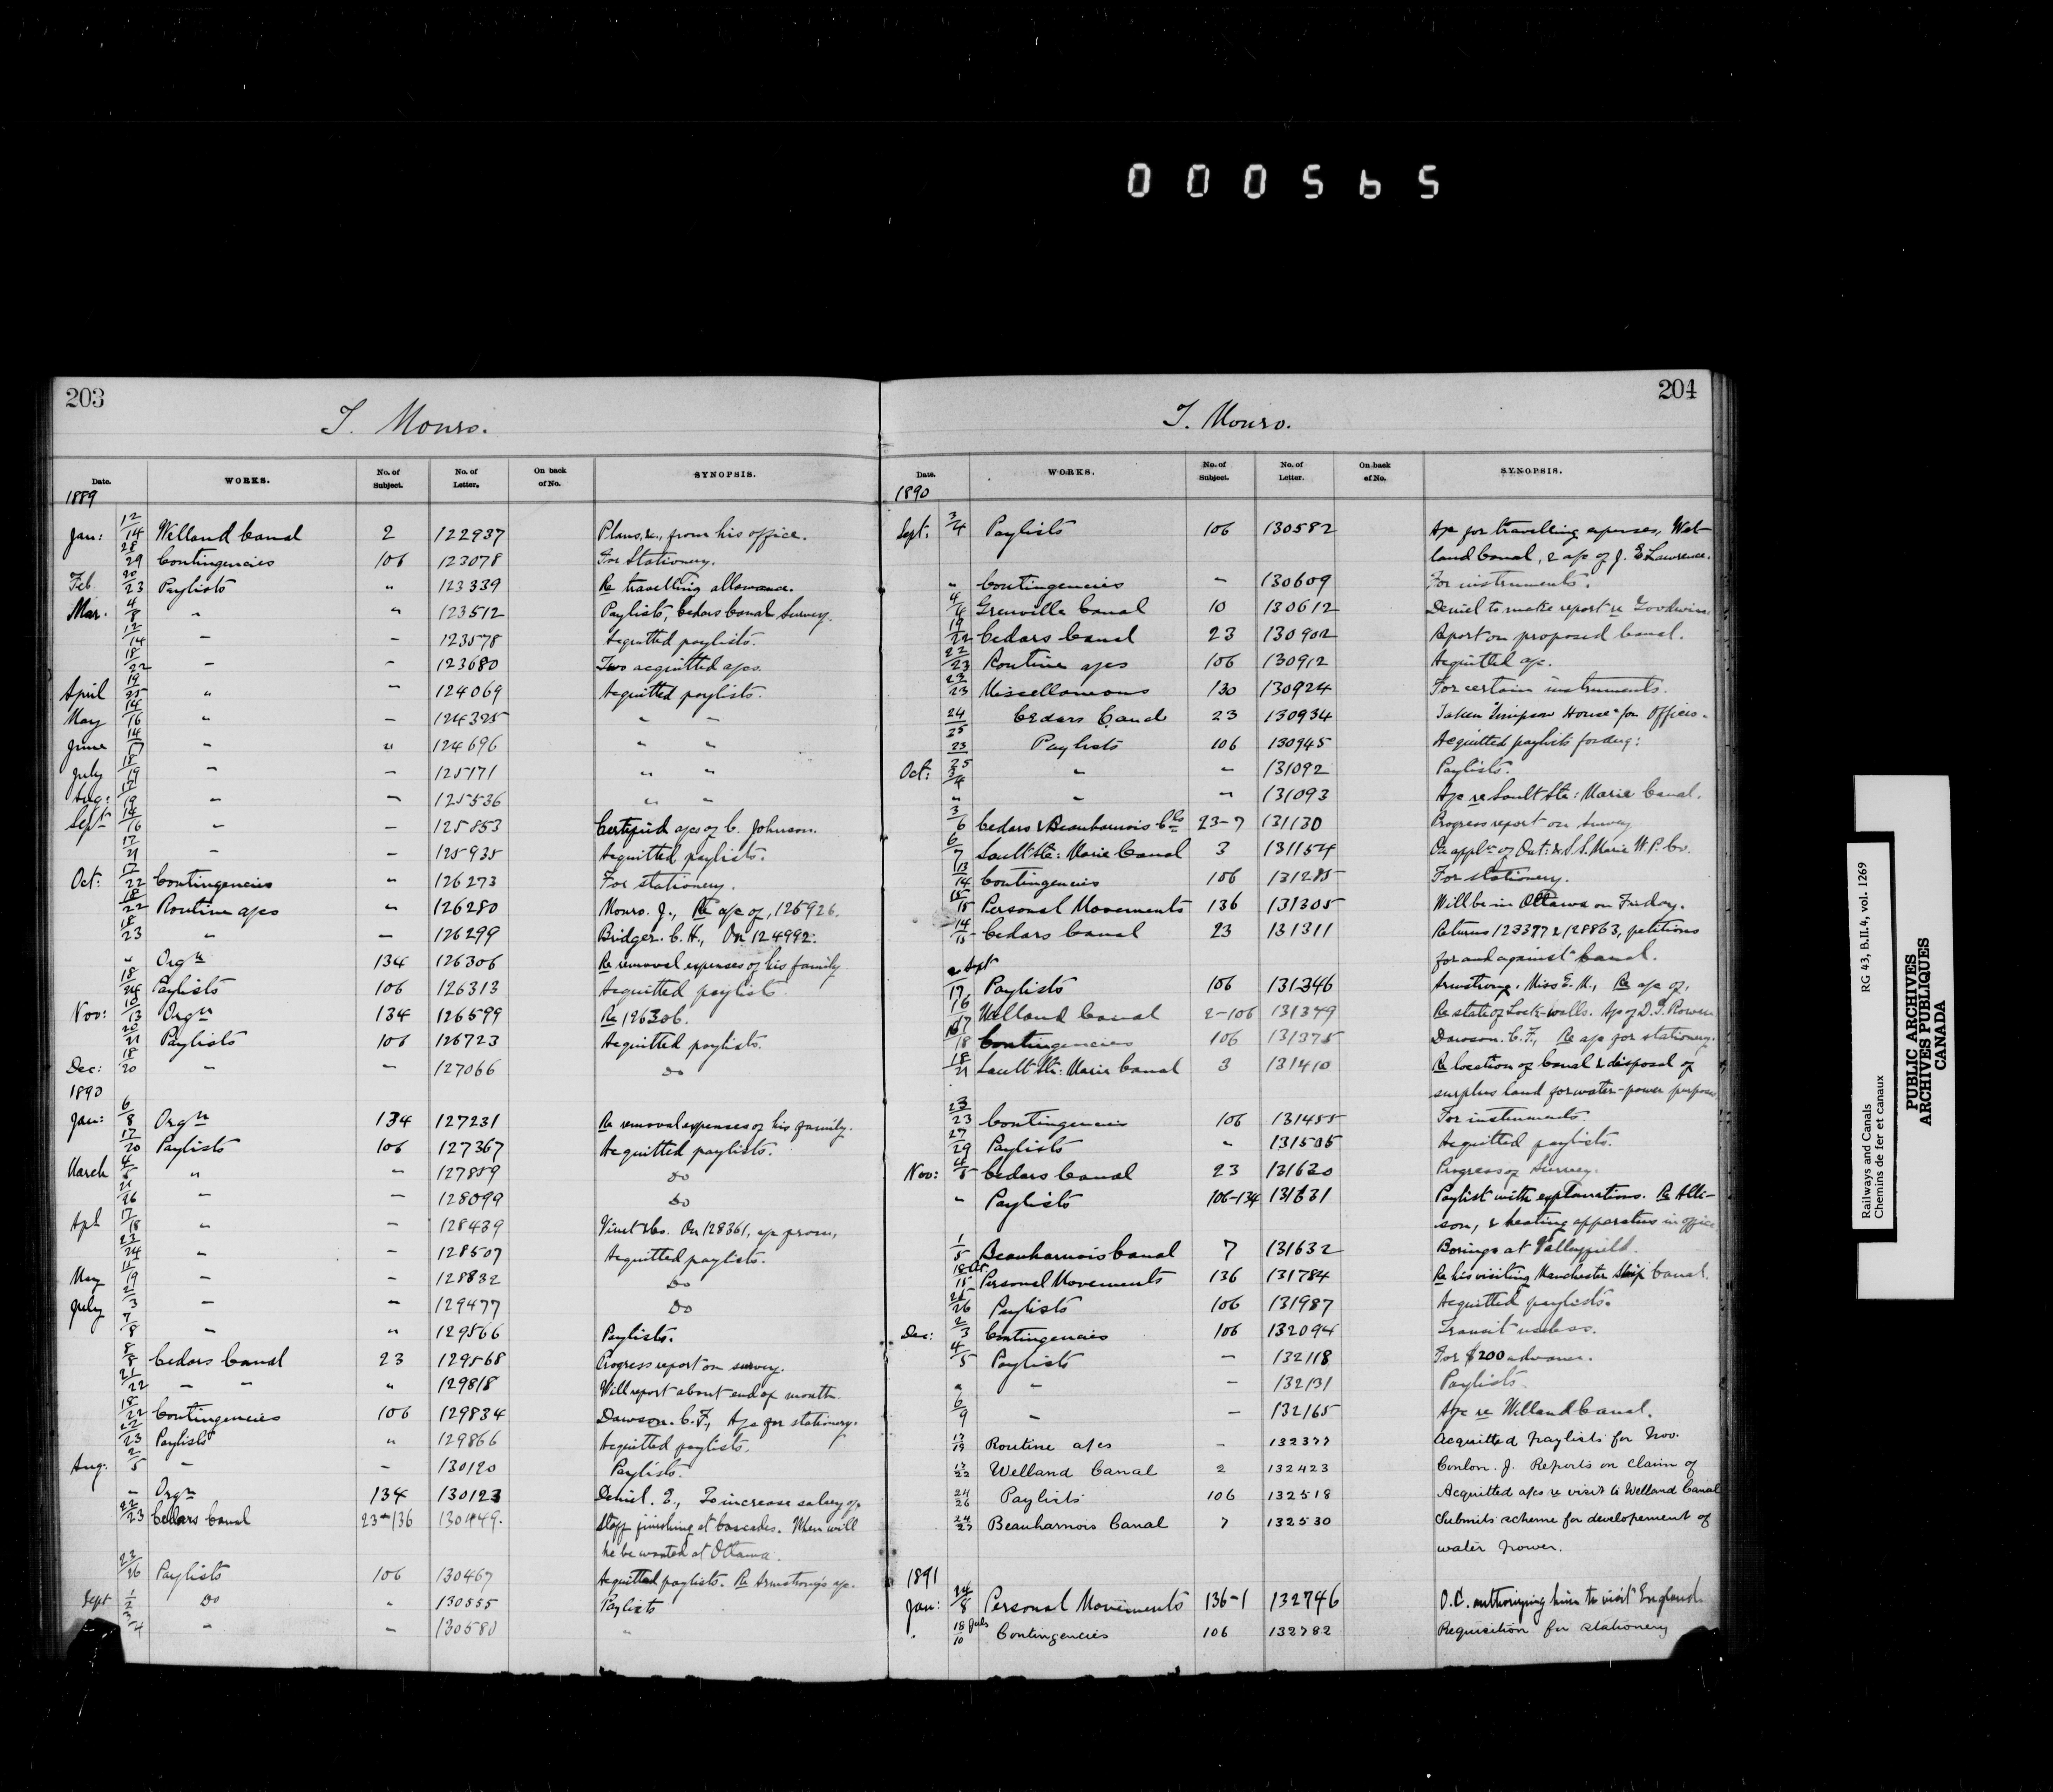 000565
203
T. Monro.
Date. WORKS. No. of Subject. No. of Letter. On back of No. SYNOPSIS.
1889
Jan: 12/14 Welland Canal 2 122937 Plans, &c., from his office.
28/29 Contingencies 106 123078 For Stationery.
Feb. 20/23 Paylists " 123339 Re travelling allowance.
Mar. 4/8 " " 123512 Paylists, Cedars Canal Survey.
12/14 " " 123578 Acquitted paylists.
18/22 " " 123680 Two acquitted a/cs.
April 19/25 " " 124069 Acquitted paylists.
May 14/16 " " 124325 " "
June 14/17 " " 124696 " "
July 18/19 " " 125171 " "
Aug: 17/19 " " 125536 " "
Sept 14/16 " " 125853 Certified a/cs of C. Johnson.
17/21 " " 125935 Acquitted paylists.
Oct: 17/22 Contingencies " 126273 For stationery.
18/22 Routine a/cs " 126280 Monro. J., Re a/c of, 125926.
18/23 " " 126299 Bridger. C. H., On 124992.
" Orgn 134 126306 Re removal expenses of his family.
18/24 Paylists 106 126313 Acquitted paylists.
Nov: 10/13 Orgn 134 126599 Re 126306.
20/21 Paylists 106 126723 Acquitted paylists.
Dec: 18/20 " " 127066 Do
1890
Jan: 6/8 Orgn 134 127231 Re removal expenses of his family.
17/20 Paylists 106 127367 Acquitted paylists.
March 4/5 " " 127859 Do
21/26 " " 128099 Do
Apl 17/18 " " 128439 On 128361, a/c from,
23/24 " " 128507 Acquitted paylists.
May 17/19 " " 128832 Do
July 2/3 " " 129477 Do
7/8 " " 129566 Paylists.
8/8 Cedars Canal 23 129568 Progress report on survey.
21/22 " " " 129818 Will report about end of month.
18/22 Contingencies 106 129834 Dawson. C. F., A/c for stationery.
22/23 Paylists " 129866 Acquitted paylists.
Aug. 2/5 " " 130120 Paylists.
" Orgn 134 130123 Deniel. E., To increase salary of
22/23 Cedars Canal 23-136 130449. Staff finishing at Cascades. When will
he be wanted at Ottawa.
23/26 Paylists 106 130467 Acquitted paylists. Re Armstrong's a/c.
Sept 1/2 Do " 130555 Paylists
3/4 " " 130580 "
204
T. Monro.
Date. WORKS. No. of Subject. No. of Letter. On back of No. SYNOPSIS.
1890
Sept: 3/4 Paylists 106 130582 A/c for travelling expenses, Wel-
land Canal, & a/c of J. E. Lawrence.
" Contingencies " 130609 For instruments.
4/6 Grenville Canal 10 130612 Deniel to make report re Goodwin
19/22 Cedars Canal 23 130902 Report on proposed Canal.
22/23 Routine a/cs 106 130912 Acquitted a/c.
23/23 Miscellaneous 130 130924 For certain instruments.
24/25 Cedars Canal 23 130934 Taken "Simpson House" for Offices.
23/25 Paylists 106 130945 Acquitted paylists for Aug:
Oct: 3/4 " " 131092 Paylists.
" " " 131093 A/c re Sault Ste: Marie Canal.
3/6 Cedars & Beauharnois Cls 23-7 131130 Progress report on survey
6/7 Sault Ste: Marie Canal 3 131154 On appln of Ont: & S. S. Marie W. P. Co.
13/14 Contingencies 106 131285 For stationery.
15/15 Personal Movements 136 131305 Will be in Ottawa on Friday.
14/15 Cedars Canal 23 131311 Returns 123377 & 128863, petitions
for and against canal.
Sept
17 Paylists 106 131346 Armstrong, Miss E. M., Re a/c of,
16/17 Welland Canal 2-106 131349 Re state of Lock-walls. A/c of D. G. Rowen
16/18 Contingencies 106 131375 Dawson. C. F., Re a/c for stationery.
18/21 Sault Ste: Marie Canal 3 131410 Re location of Canal & disposal of
surplus land for water-power purposes
23/23 Contingencies 106 131455 For instruments
27/29 Paylists " 131505 Acquitted paylists.
Nov: 4/5 Cedars Canal 23 131630 Progress of Survey.
" Paylists 106-134 131631 Paylist with explanations. Re Alli-
son, & heating apparatus in office
1/5 Beauharnois Canal 7 131632 Borings at Valleyfield.
18 Oct/15 Personal Movements 136 131784 Re his visiting Manchester Ship Canal.
25/26 Paylists 106 131987 Acquitted paylists.
Dec: 2/3 Contingencies 106 132094 Transit useless.
4/5 Paylists " 132118 For $200 advance.
" " " 132131 Paylists
6/9 " " 132165 A/c re Welland Canal.
17/19 Routine a/cs " 132377 Acquitted paylists for Nov.
17/22 Welland Canal 2 132423 Conlon. J. Reports on claim of
24/26 Paylists 106 132518 Acquitted a/cs re visit to Welland Canal
24/27 Beauharnois Canal 7 132530 Submits scheme for developement of
water power.
1891
Jan: 24/8 Personal Movements 136-1 132746 O.C. authorizing him to visit England
10 Contingencies 106 132782 Requisition for stationery
Railways and Canals RG 43, B.II.4, vol. 1269
Chemins de fer et canaux
PUBLIC ARCHIVES
ARCHIVES PUBLIQUES
CANADA